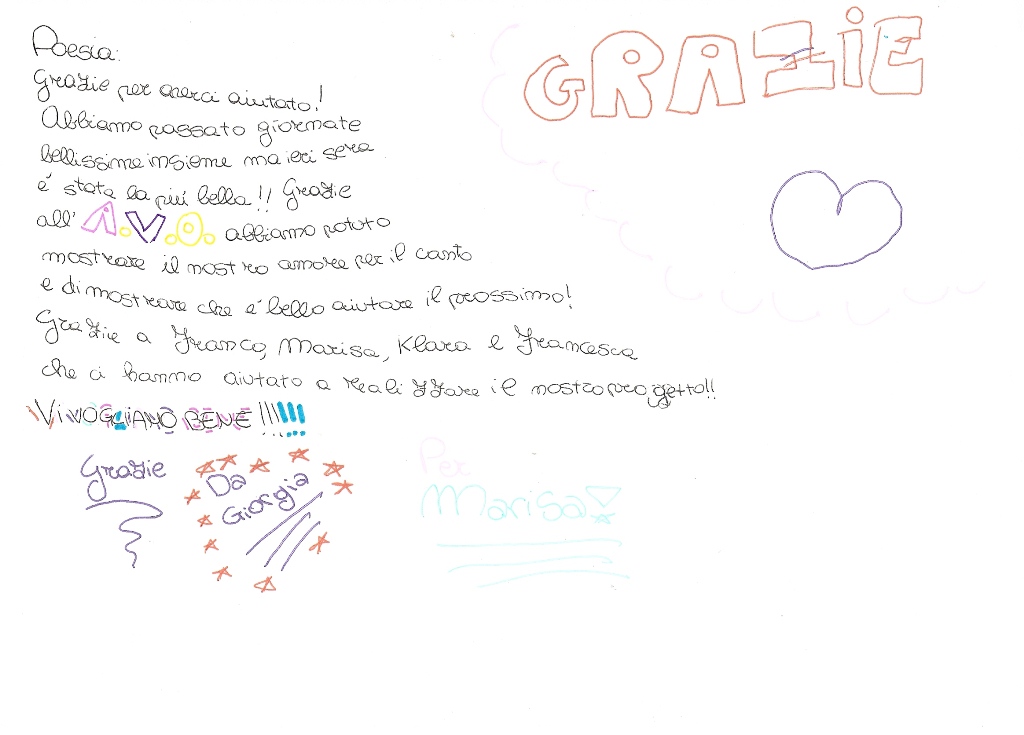 GRAZiE
Poesia:
Grazie per averci aiutato!
Abbiamo passato giornate
bellissime insieme ma ieri sera
é stata la piú bella!! Grazie
all' A.V.O. abbiamo potuto
mostrare il nostro amore per il canto
e di mostrare che é bello aiutare il prossimo!
Grazie a Franco, Marisa, Klara e Francesca
che ci hanno aiutato a realizzare il nostro progetto!!
Vi VOGLIAMO BENE !!!!!!
Grazie
Da
Giorgia
Per
Marisa!